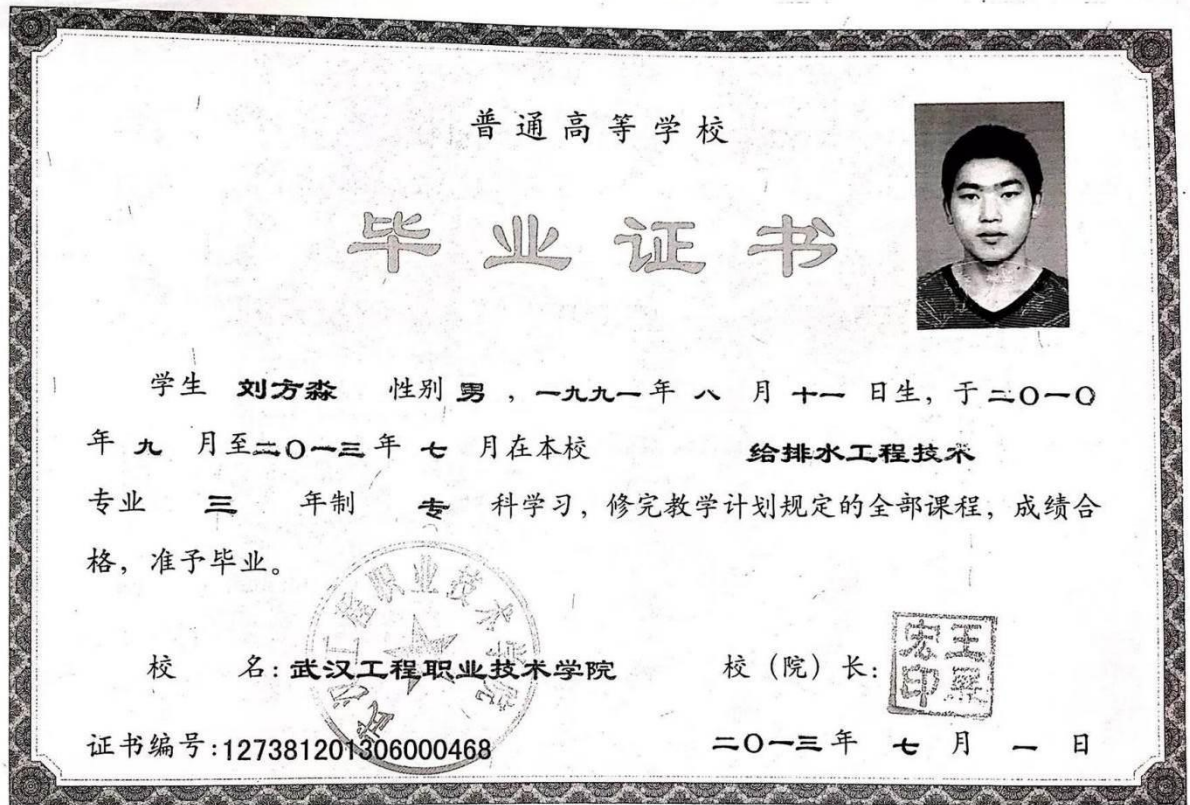 普通高等学校
毕业证书
学生 刘方淼 性别 男 ，一九九一年 八 月 十一 日生，于二〇一〇
年 九 月至二〇一三年 七 月在本校 给排水工程技术
专业 三 年制 专 科学习，修完教学计划规定的全部课程，成绩合
格，准予毕业。
武汉工程职业技术学院
校 名：武汉工程职业技术学院 校（院）长：
证书编号：127381201306000468 二〇一三年 七 月 一 日